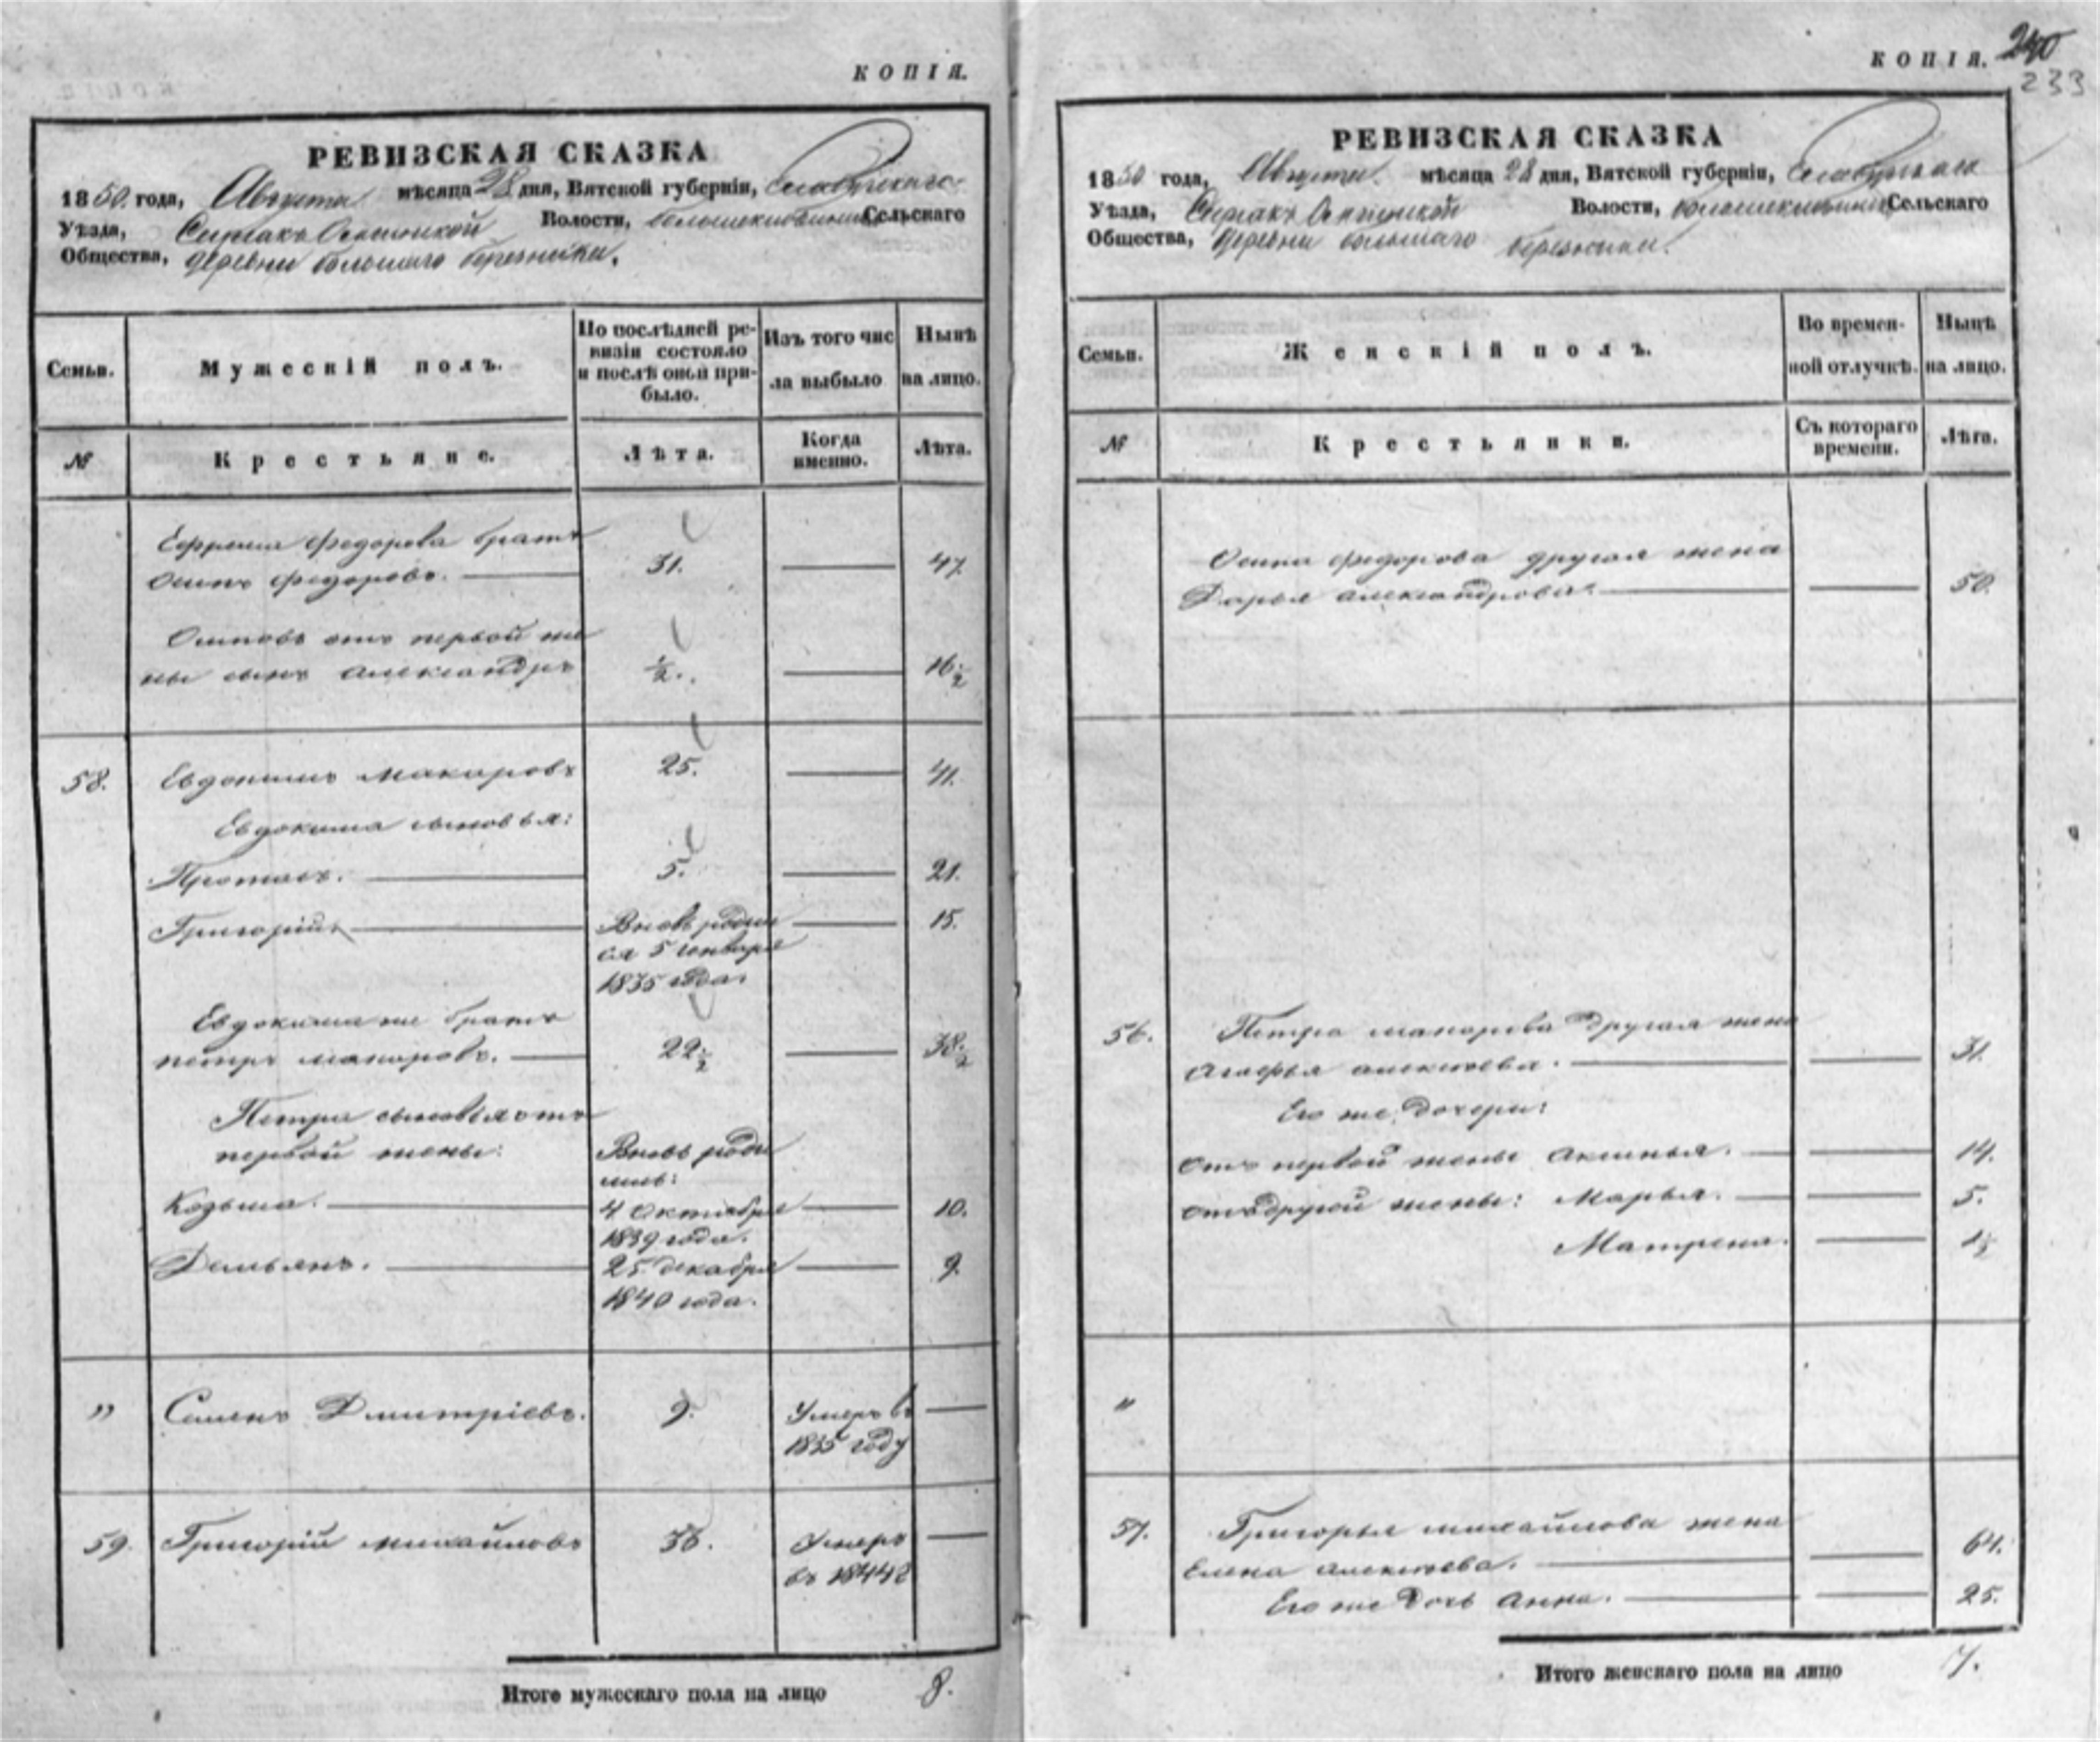 КОПІЯ.
РЕВИЗСКАЯ СКАЗКА
1850 года, Августа мѣсяца 28 дня, Вятской губерніи, Елабужскаго
Уѣзда, Волости, Сельскаго
Общества, деревни большаго березника.
Семьи.
Мужескій полъ.
По послѣдней ре-
визіи состояло
и послѣ оной при-
было.
Изъ того чис
ла выбыло
Нынѣ
на лицо.
№
Крестьяне.
Лѣта.
Когда
именно.
Лѣта.
Ефрема Федорова братъ
Осипъ Федоровъ. 31. 47.
Осиповъ отъ первой же
ны сынъ Александръ ½. 16½
58. Евдокимъ Макаровъ 25. 41.
Евдокима сыновья:
Протасъ. 5. 21.
Григорій Вновь родил 15.
ся 5 генваря
1835 года.
Евдокима же братъ
Петръ Макаровъ. 22½ 38½
Петра сыновья отъ
первой жены: Вновь роди
лись:
Козьма. 4 Октября 10.
1839 года.
Демьянъ. 25 декабря 9.
1840 года.
" Семенъ Дмитріевъ. 9. Умеръ въ
1835 году
59. Григорій Михайловъ 36. Умеръ
въ 1844 г
Итого мужескаго пола на лицо 8.
КОПІЯ. 240
233
РЕВИЗСКАЯ СКАЗКА
1850 года, Августа мѣсяца 28 дня, Вятской губерніи, Елабужскаго
Уѣзда, Волости, Сельскаго
Общества, деревни большаго березника.
Семьи.
Женскій полъ.
Во времен-
ной отлучкѣ.
Нынѣ
на лицо.
№
Крестьянки.
Съ котораго
времени.
Лѣта.
Осипа Федорова другая жена
Дарья Александрова. 50.
56. Петра Макарова другая жена
Агафья Алексѣева. 31.
Его же дочери:
Отъ первой жены Аксинья. 14.
Отъ другой жены: Марья. 5.
Матрена.
"
57. Григорья Михайлова жена
Елена Алексѣева. 61.
Его же Дочь Анна. 25.
Итого женскаго пола на лицо 7.